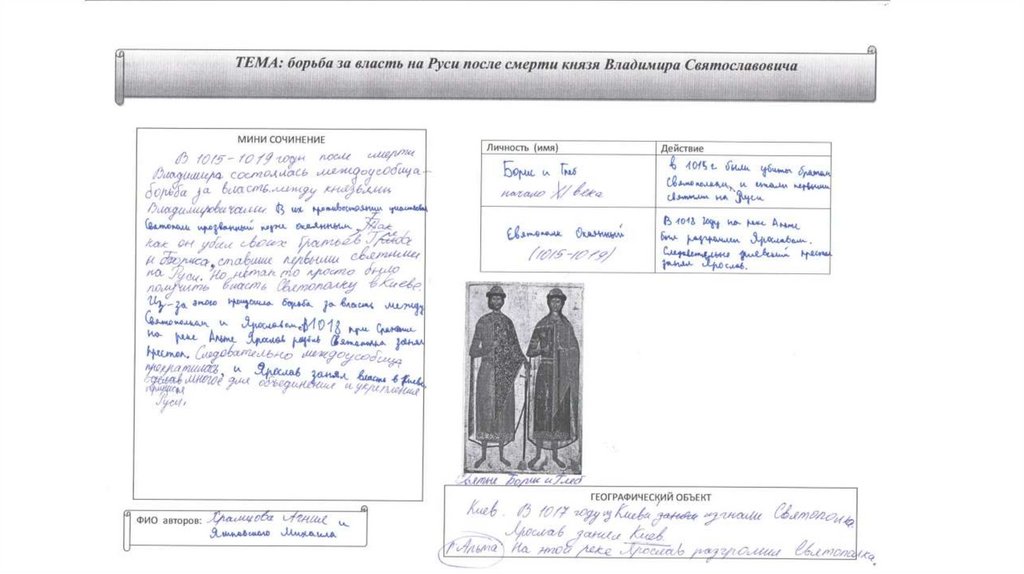 ТЕМА: борьба за власть на Руси после смерти князя Владимира Святославовича
МИНИ СОЧИНЕНИЕ
В 1015-1019 годы после смерти
Владимира состоялась междоусобица-
борьба за власть между князьями
Владимировичами. В их противостоянии участвовал
Святополк прозванный позже окаянным. Так
как он убил своих братьев Глеба
и Бориса, ставшие первыми святыми
на Руси. Но не так то просто было
получить власть Святополку в Киеве.
Из-за этого произошла борьба за власть между
Святополком и Ярославом. В 1018 при Сражение
на реке Альте Ярослав разбив Святополка занял
престол. Следовательно междоусобица
прекратилась, и Ярослав занял власть в Киеве,
сделав многое для объединения и укрепления
Руси.
ФИО авторов: Храмцова Агния и
Михаила
Личность (имя) Действие
Борис и Глеб
начало XI века
в 1015 г были убиты братом
Святополком, и стали первыми
святыми на Руси
Святополк Окаянный
(1015-1019)
В 1018 году на реке Альте
был разгромлен Ярославом.
Следовательно киевский престол
занял Ярослав.
Святые Борис и Глеб
ГЕОГРАФИЧЕСКИЙ ОБЪЕКТ
Киев. В 1017 году из Киева изгнали Святополка
Ярослав занял Киев
р Альта На этой реке Ярослав разгромил Святополка.